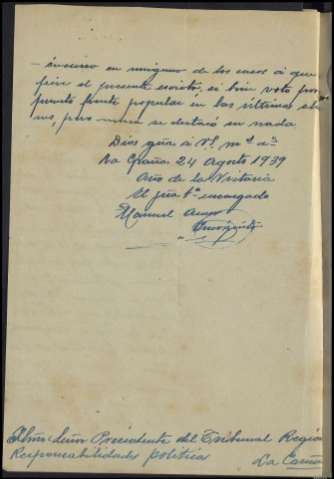 - incurso en ninguno de los casos á que
fiere el presente escrito, si bien voto por
frente popular en las ultimas
pero nunca se destacó en nada
Dios gũe á V. m. a.
La 24 Agosto 1939
Año de la Victoria
El encargado
Manuel
Iltmo Señor Precidente del Tribunal Regio
Responsabilidades politica
La Coruña